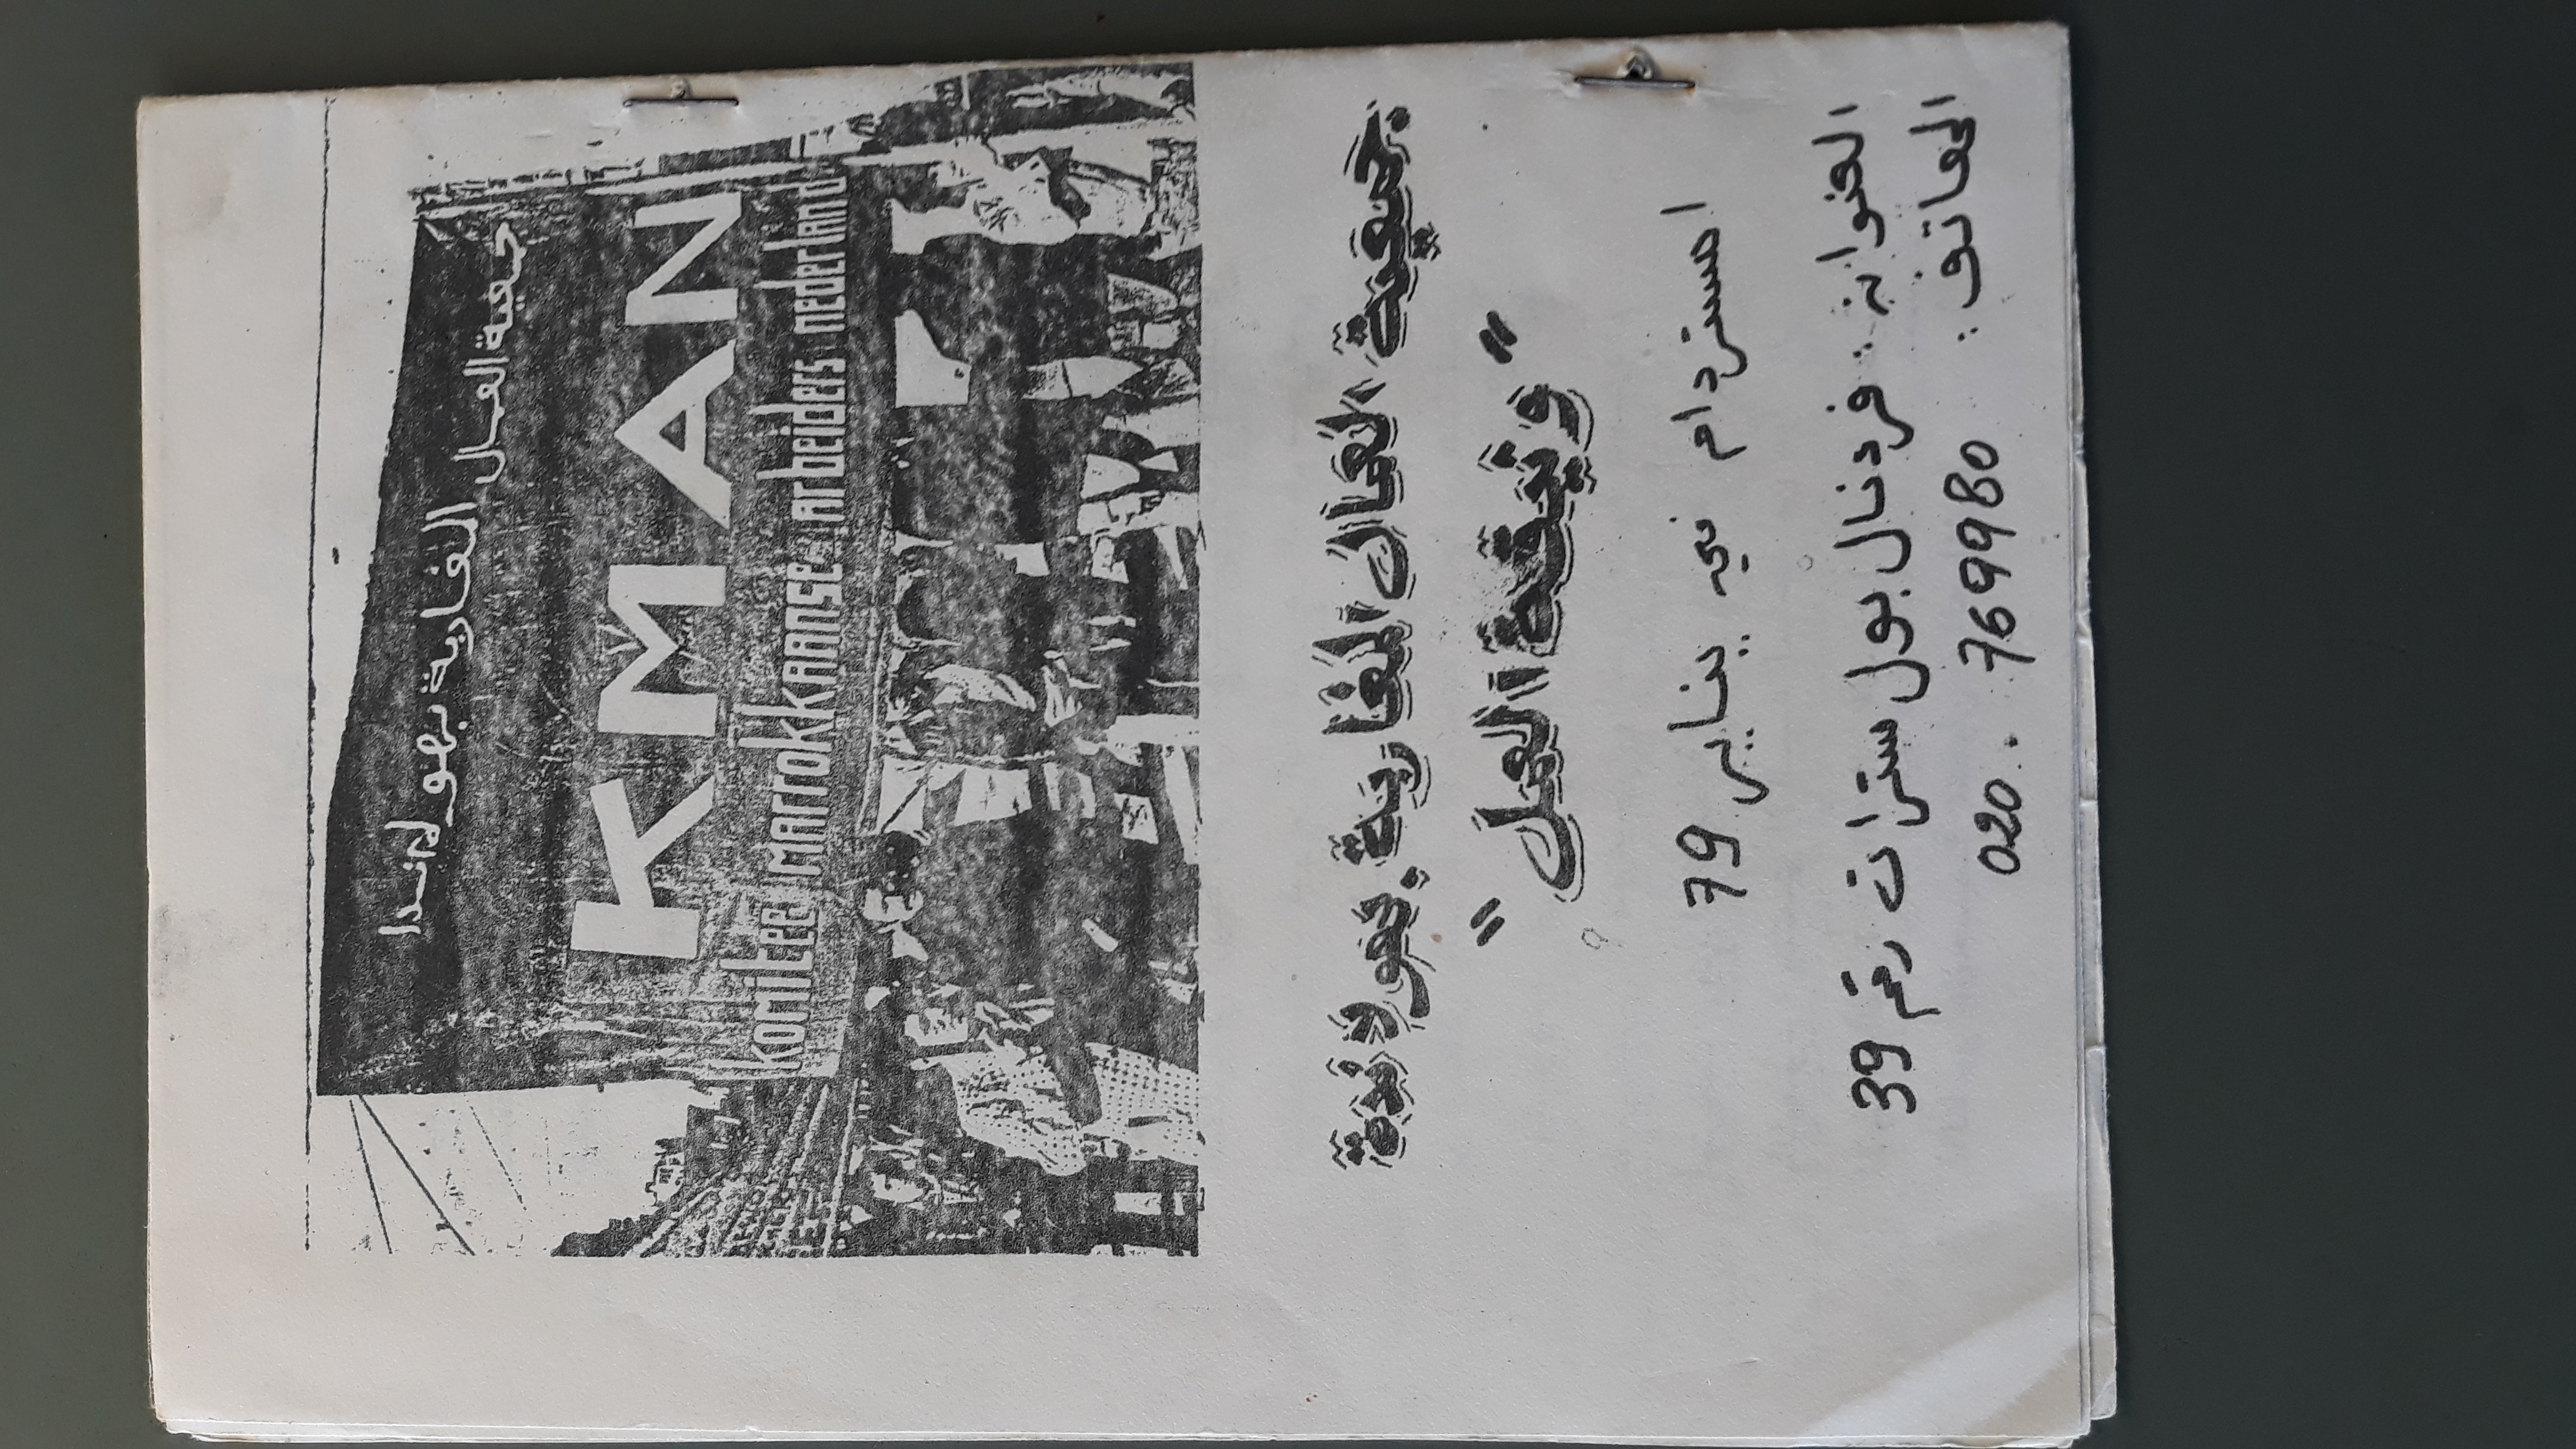 جمعية العمال المغاربة بهولاندا
KMAN
komitee marokkaanse arbeiders nederland
جمعية العمال المغاربة بهولاندة
"وثيقة العمل"
امستردام في يناير 79
العنوان: فردنال بول سترات رقم 39
الهاتف: 020. 7699980